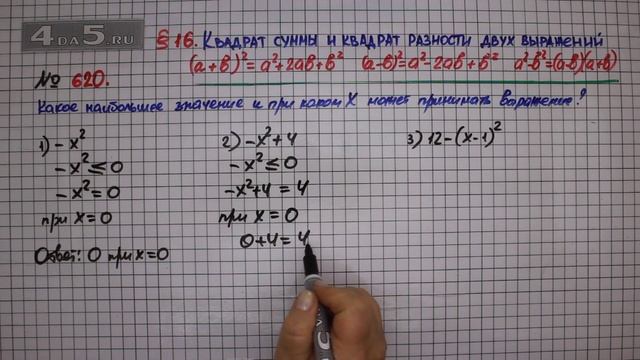 4DA5.RU
§16. Квадрат суммы и квадрат разности двух выражений
(a+b)²=a²+2ab+b² (a-b)²=a²-2ab+b² a²-b²=(a-b)(a+b)
№ 620.
Какое наибольшее значение и при каком X может принимать выражение?
1) -x²
-x²≤0
-x²=0
при x=0
Ответ: 0 при x=0
2) -x²+4
-x²≤0
-x²+4=4
при x=0
0+4=4
3) 12-(x-1)²